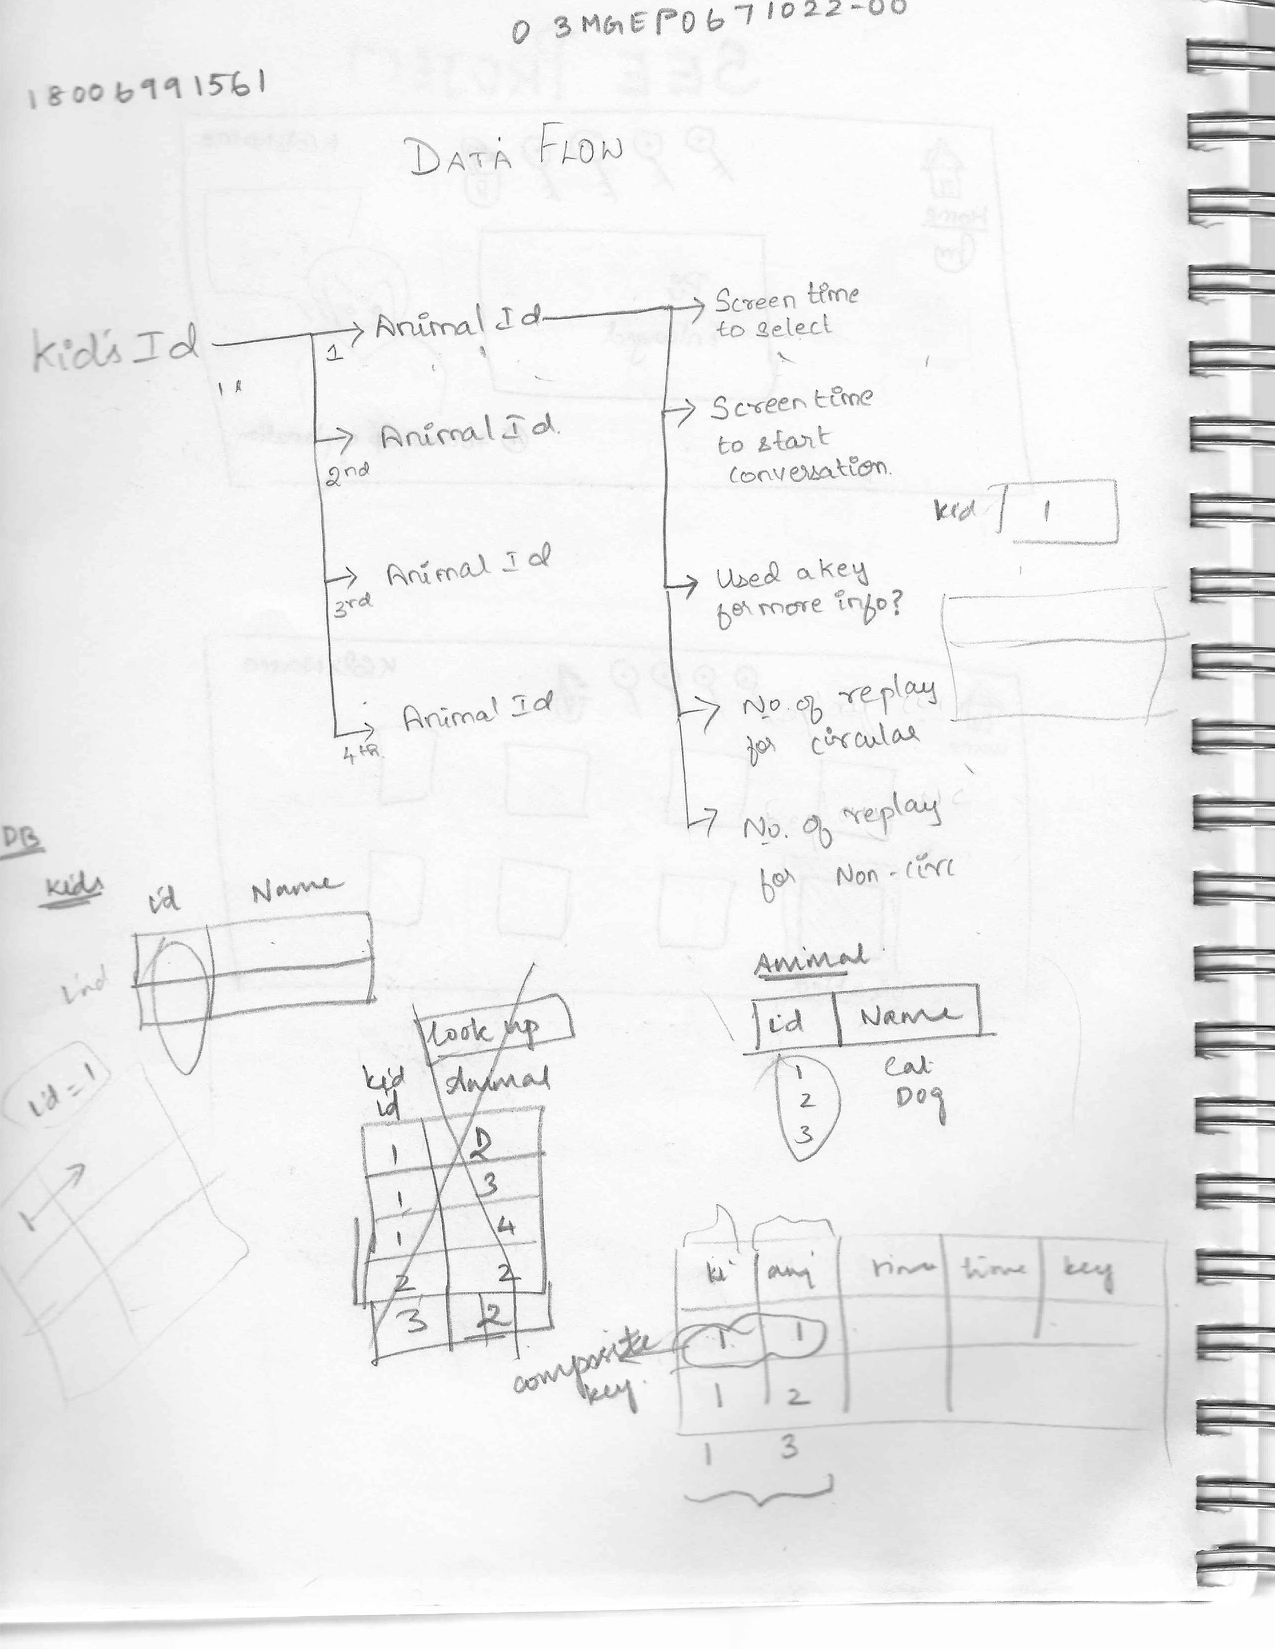 03MGEP0671022-00
18006991561
DATA FLOW
Kid's Id
1 Animal Id
2nd Animal Id.
3rd Animal Id
4th Animal Id
Screen time
to select
Screen time
to start
conversation.
Used a key
for more info?
No. of replay
for circular
No. of replay
for Non-circ
kid 1
DB
Kids
id Name
id = 1
Look up
kid id Animal
1 2
1 3
1 4
2 2
3 2
Animal
id Name
1 Cat
2 Dog
3
ki ani time time key
1 1
composite
key.
1 2
1 3